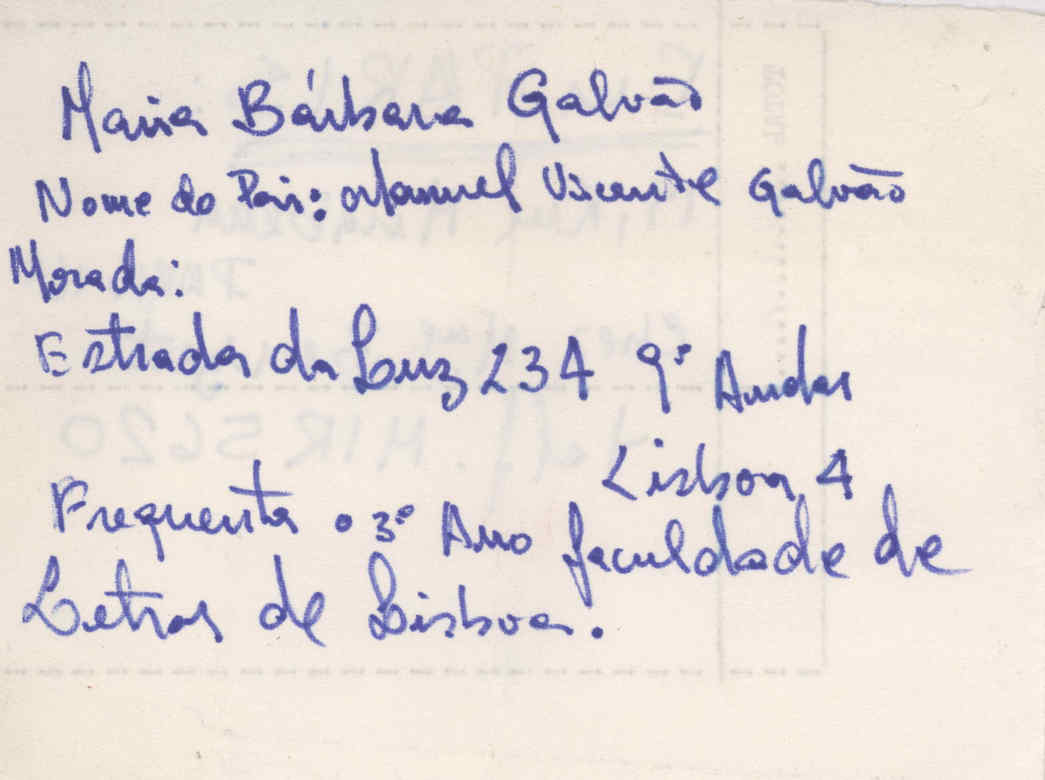 Maria Bárbara Galvão
Nome do Pai: Manuel Vicente Galvão
Morada:
Estrada da Luz 234 9º Andar
Lisboa 4
Frequenta o 3º Ano faculdade de
Letras de Lisboa.